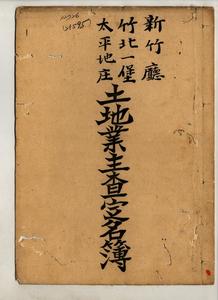 新竹廳
竹北一堡
太平地庄
土地業主查定名簿